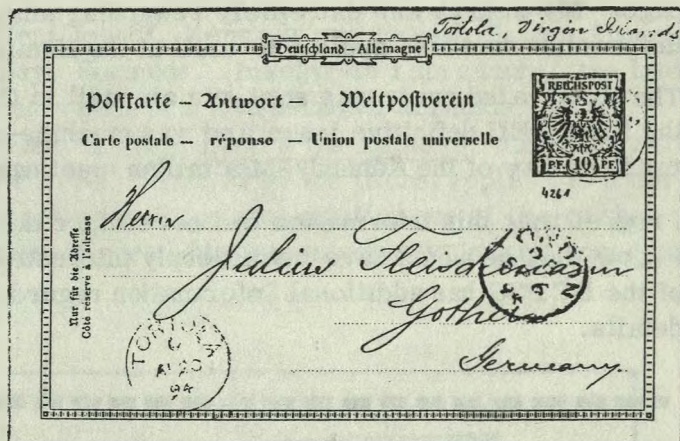 Tortola, Virgin Islands
Deutschland – Allemagne
Postkarte – Antwort – Weltpostverein
Carte postale – réponse – Union postale universelle
REICHSPOST
PF. 10 PF.
4261
Nur für die Adresse
Côté réservé à l'adresse
Herrn
Julius Fleischmann
Gotha
Germany
TORTOLA
C
AU 20
94
LONDON